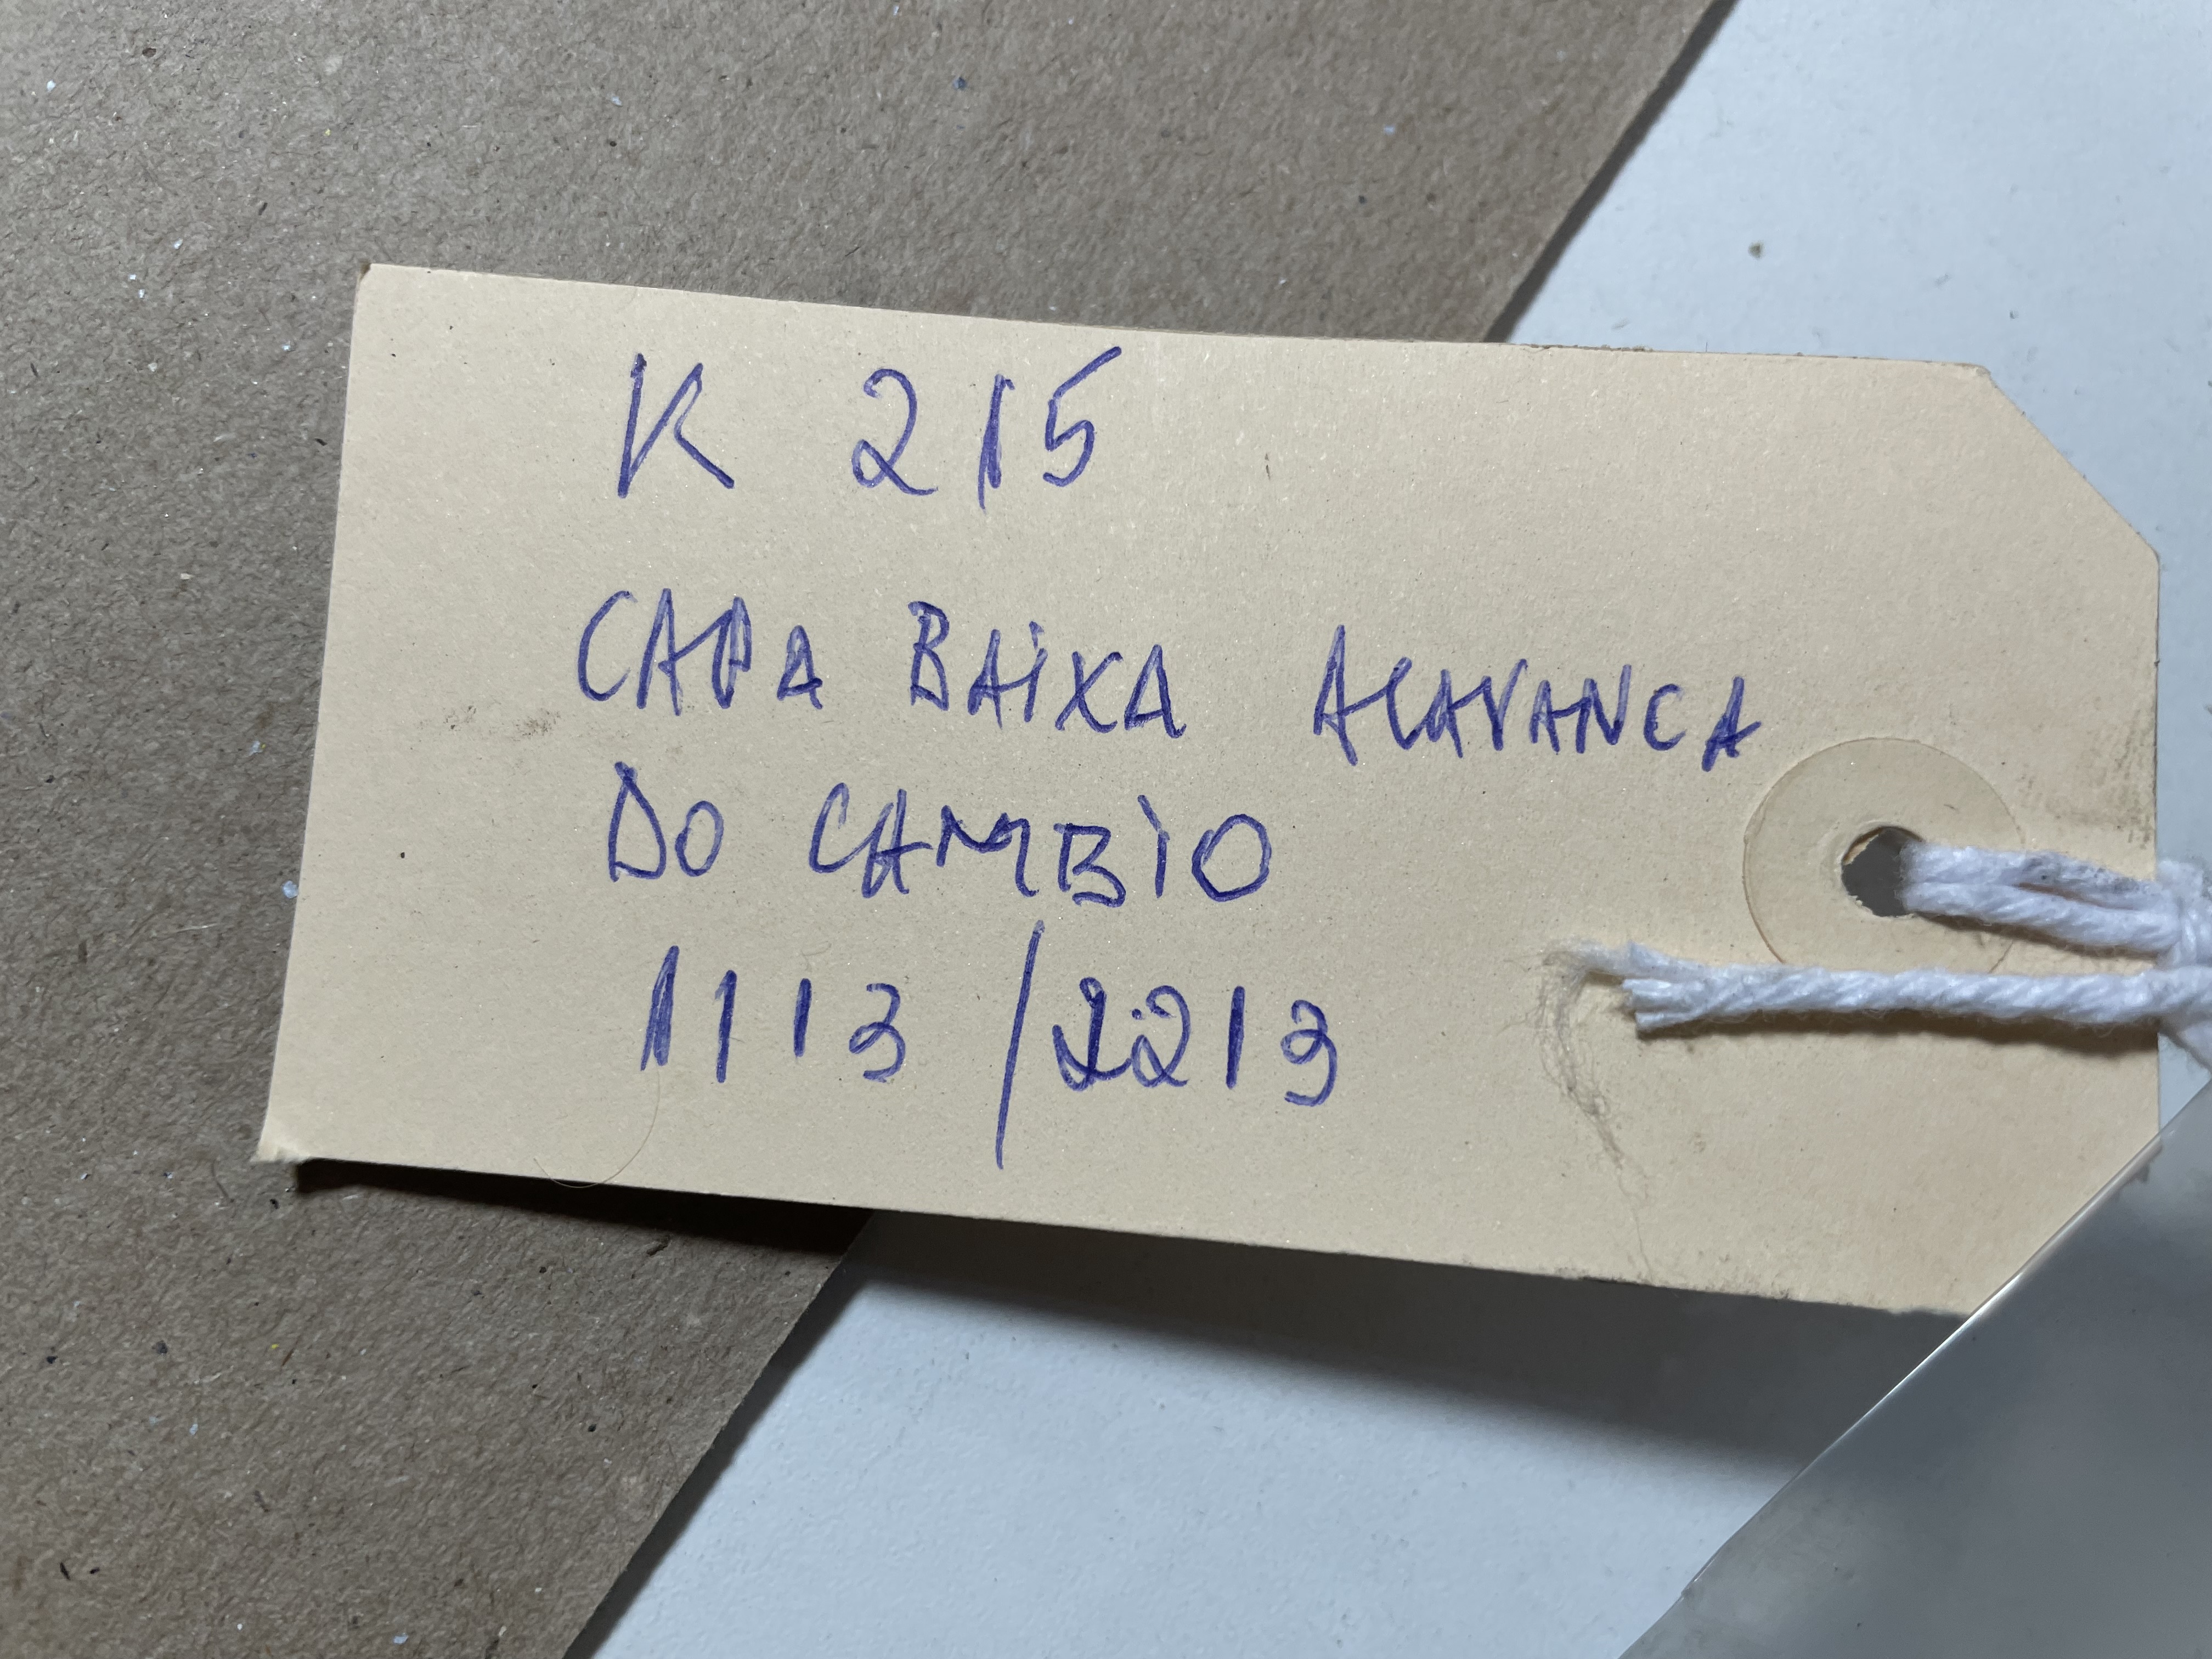 K 215
CAPA BAIXA ALAVANCA
DO CAMBIO
1113 / 2213